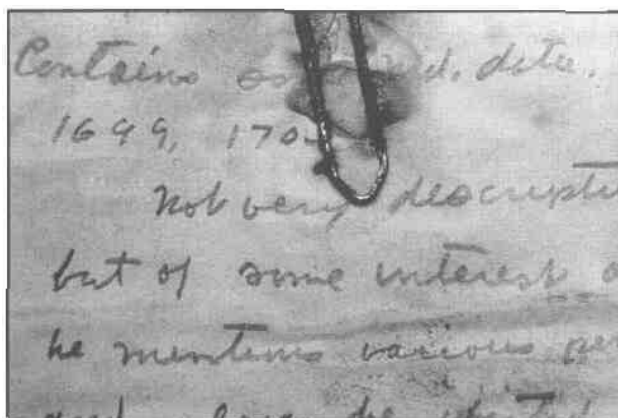 Contains d. date.
1699, 170
Not very descripti
but of some interest
he mentions various per